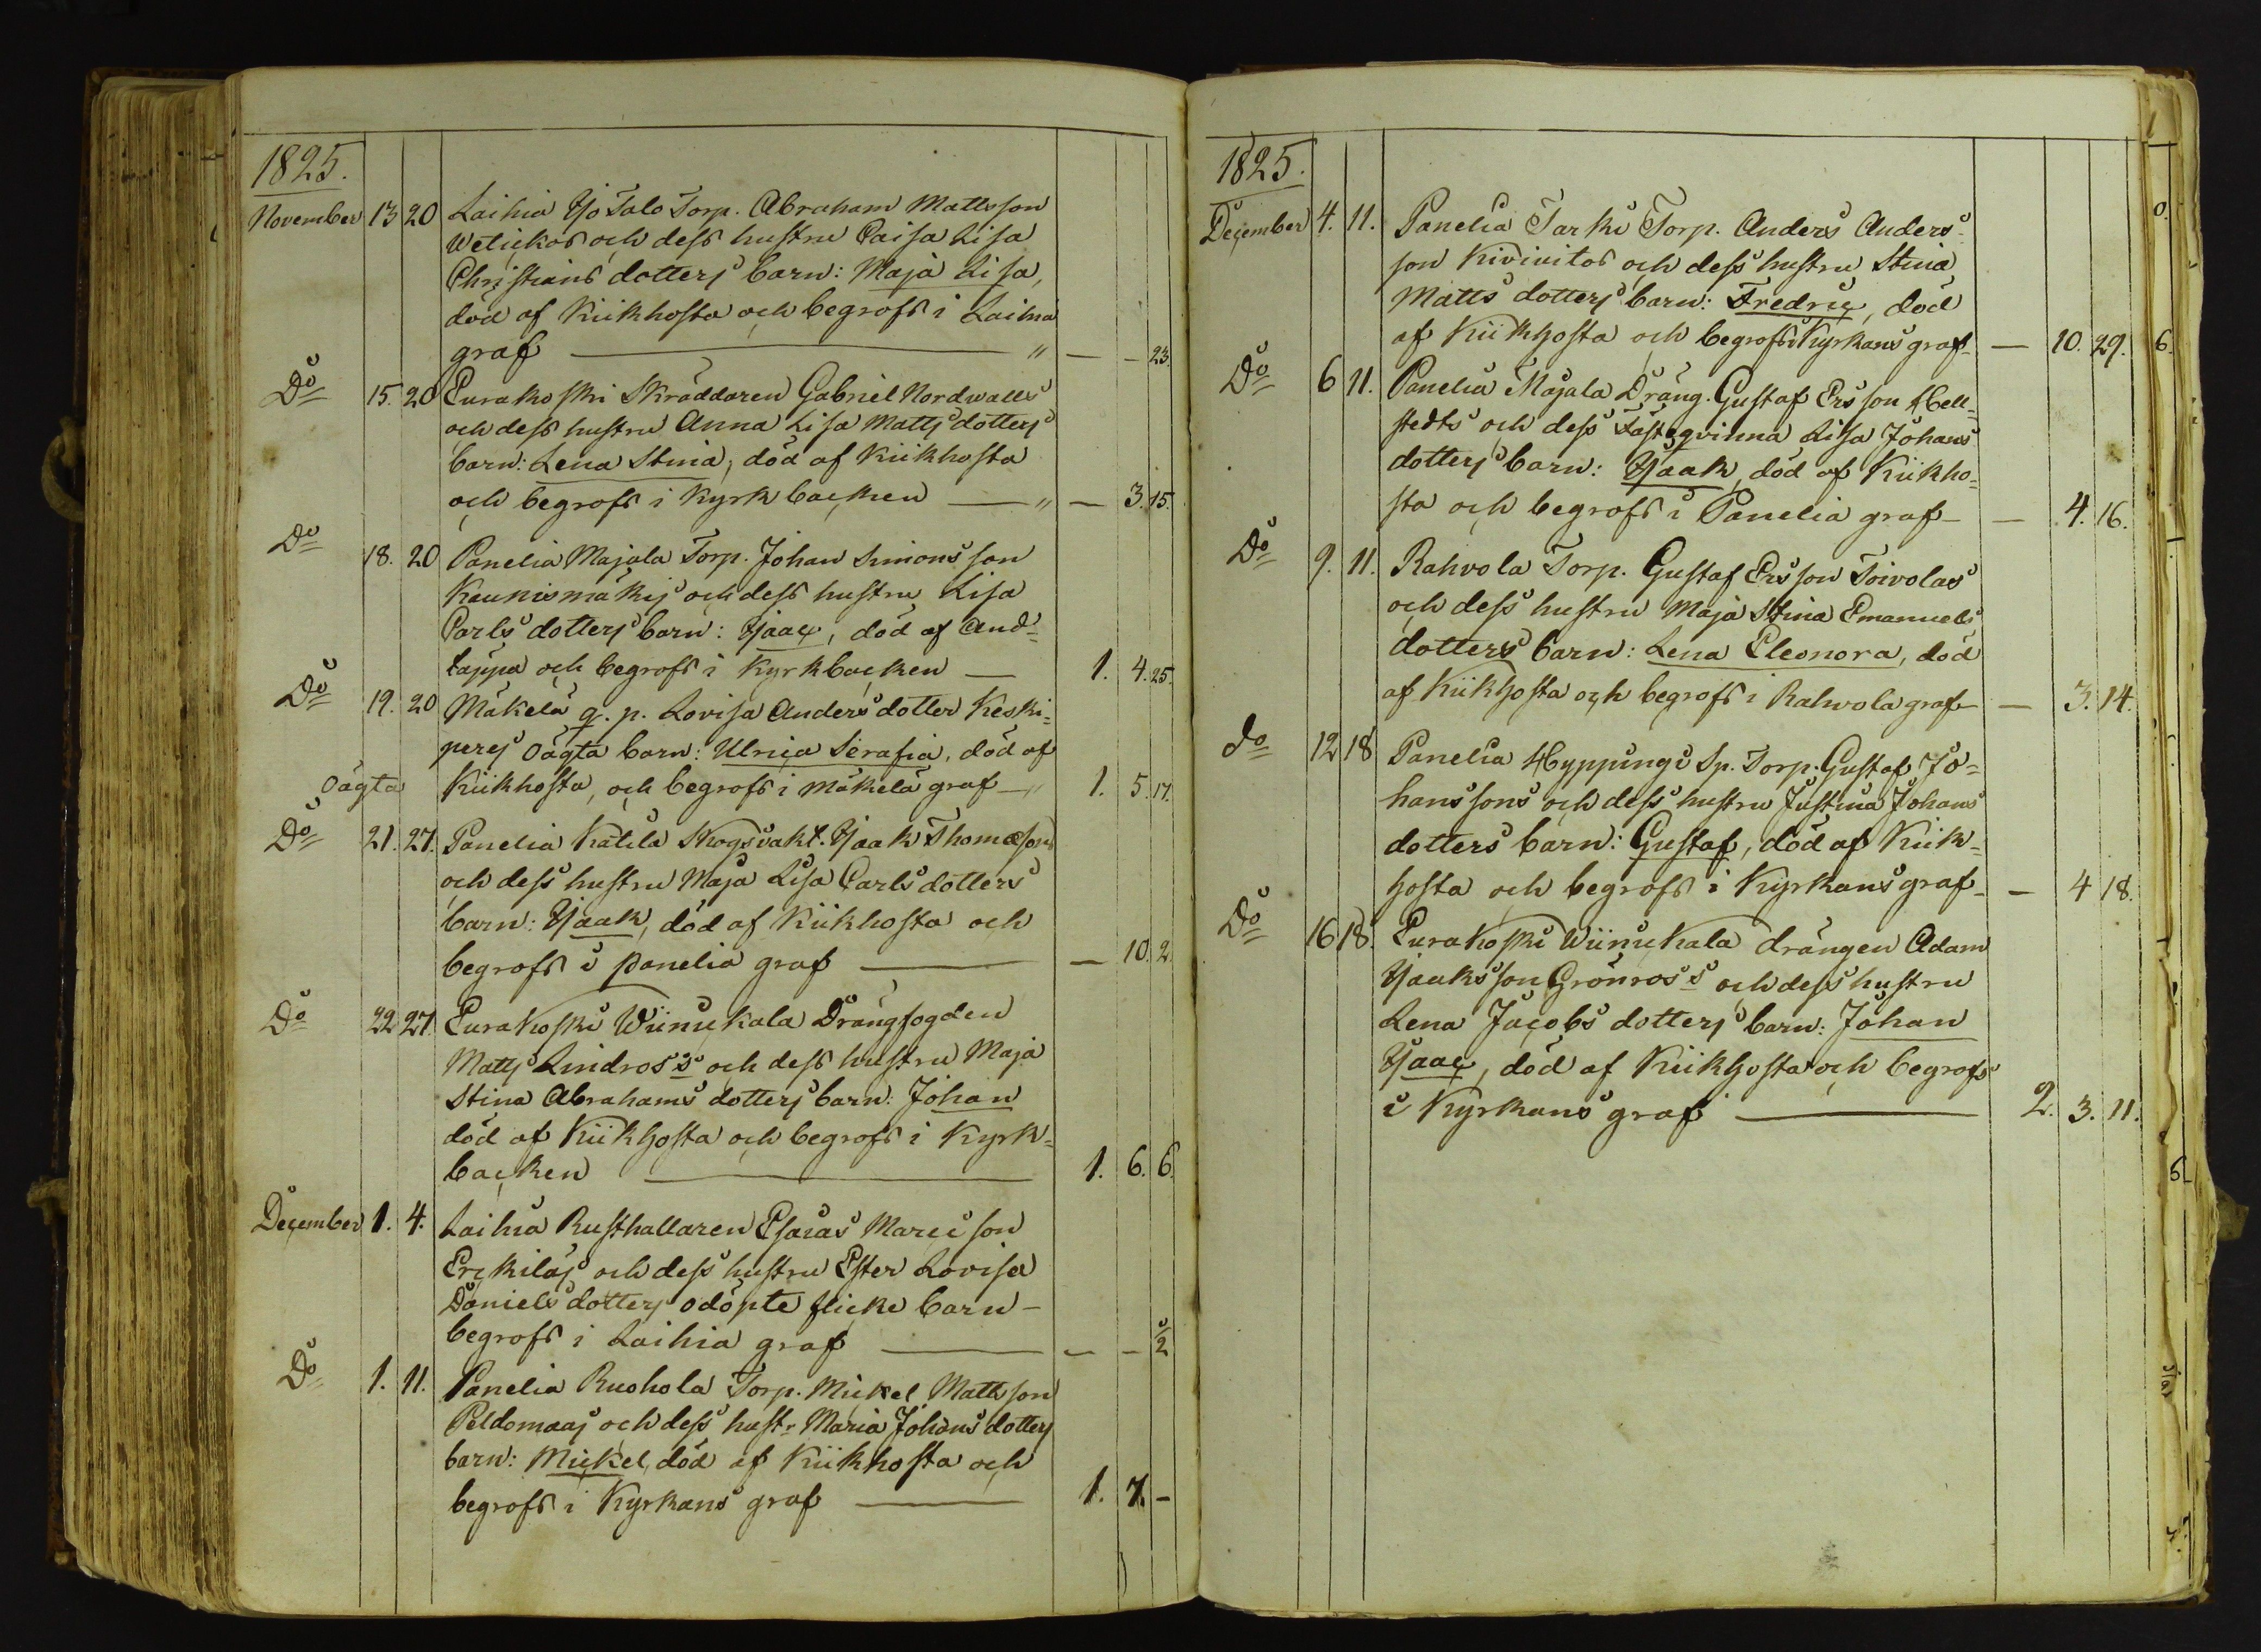 1825.
November 13 20 Laihia Yjo Talo Torp. Abraham Mattsson
Wetickos och dess hustru Caisa Lisa
Christians dotters barn: Maja Lisa,
död af Kikhosta och begrofs i Laihia
graf — " — — 23.
Do 15. 20 Eurakoski Skräddaren Gabriel Nordwalls
och dess hustru Anna Lisa Matts dotters
barn: Lena Stina, död af Kikhosta
och begrofs i Kyrkbacken — " — 3. 15.
Do 18. 20 Panelia Majala Torp. Johan Simonsson
Kaunismäkis och dess hustru Lisa
Carls dotters barn: Isaac, död af And-
täppa och begrofs i Kyrkbacken — 1. 4. 25.
Do 19. 20 Mäkelä q. p. Lovisa Anders dotter Keski-
peres oägta barn: Ulrica Serafia, död af
oägta Kikhosta, och begrofs i Mäkelä graf — " 1. 5. 17.
Do 21. 27. Panelia Kätilä Skogsvakt. Isaak Thomæsons
och dess hustru Maja Lisa Carls dotters
barn: Isaak, död af Kikhosta och
begrofs i panelia graf — — 10. 2.
Do 22 27. Eurakoski Wiinickala Drängfogden
Matts Lindross och dess hustru Maja
Stina Abrahams dotters barn: Johan
död af Kikhosta och begrofs i Kyrk-
backen — 1. 6. 6.
December 1. 4. Laihia Rusthallaren Esaias Marcisson
Erckiläs och dess hustru Ester Lovisa
Daniels dotters odöpte flicke barn —
begrofs i Laihia graf — — — 1/2
Do 1. 11. Panelia Ruohola Torp. Mickel Mattsson
Peldomaas och dess hustr. Maria Johans dotters
barn: Mickel, död af Kikhosta och
begrofs i Kyrkans graf — 1. 7. —
1825.
December 4. 11. Panelia Tarki Torp. Anders Anders-
son Kivinitos och dess hustru Stina
Matts dotters barn: Fredric, död
af Kikhosta och begrofs i Kyrkans graf — — 10. 29.
Do 6 11. Panelia Majala Dräng. Gustaf Ersson Hell-
stedts och dess Fästeqvinna Lisa Johans
dotters barn: Isaak, död af Kikho-
sta och begrofs i Panelia graf — — 4. 16.
Do 9. 11. Rahvola Torp. Gustaf Ersson Toivolas
och dess hustru Maja Stina Emanuels
dotters barn: Lena Eleonora, död
af Kikhosta och begrofs i Rahvola graf — — 3. 14.
do 12 18 Panelia Hyppingi Sp. Torp. Gustaf Jo-
hanssons och dess hustru Justina Johans
dotters barn: Gustaf, död af Kik-
hosta och begrofs i Kyrkans graf — — 4 18.
Do 16 18. Eurakoski Wiinickala drängen Adam
Isaaksson Grönross och dess hustru
Lena Jacobs dotters barn: Johan
Isaac, död af Kikhosta och begrofs
i Kyrkans graf — 2. 3. 11.